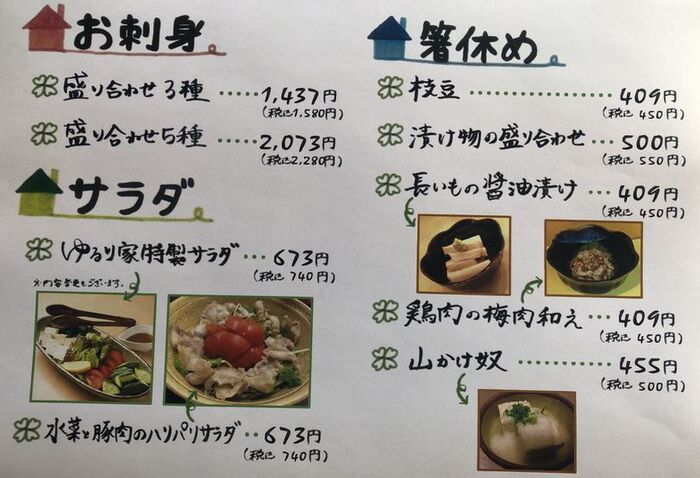 お刺身
盛り合わせ3種 ・・・・・・ 1,437円
(税込1,580円)
盛り合わせ5種 ・・・・・・ 2,073円
(税込2,280円)
サラダ
ゆるり家特製サラダ ・・・ 673円
(税込 740円)
※内容変更もございます。
水菜と豚肉のハリハリサラダ ・・ 673円
(税込 740円)
箸休め
枝豆 ・・・・・・・・・・・・・・ 409円
(税込 450円)
漬け物の盛り合わせ ・・・ 500円
(税込 550円)
長いもの醤油漬け ・・・ 409円
(税込 450円)
鶏肉の梅肉和え ・・・ 409円
(税込 450円)
山かけ奴 ・・・・・・・・・・・ 455円
(税込 500円)